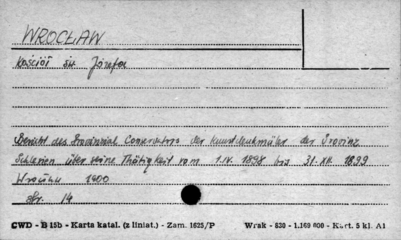 WROCŁAW
Kościół św. Józefa
Bericht des Provinzial Conservators der Kunstdenkmäler der Provinz
Schlesien über seine Thätigkeit vom 1.IV. 1898 bis 31.XII. 1899
Wrocław 1900
Str. 14
CWD - B 15b - Karta katal. (z liniat.) - Zam. 1625/P Wrak - 630 - 1.169 600 - Kart. 5 kl. A1